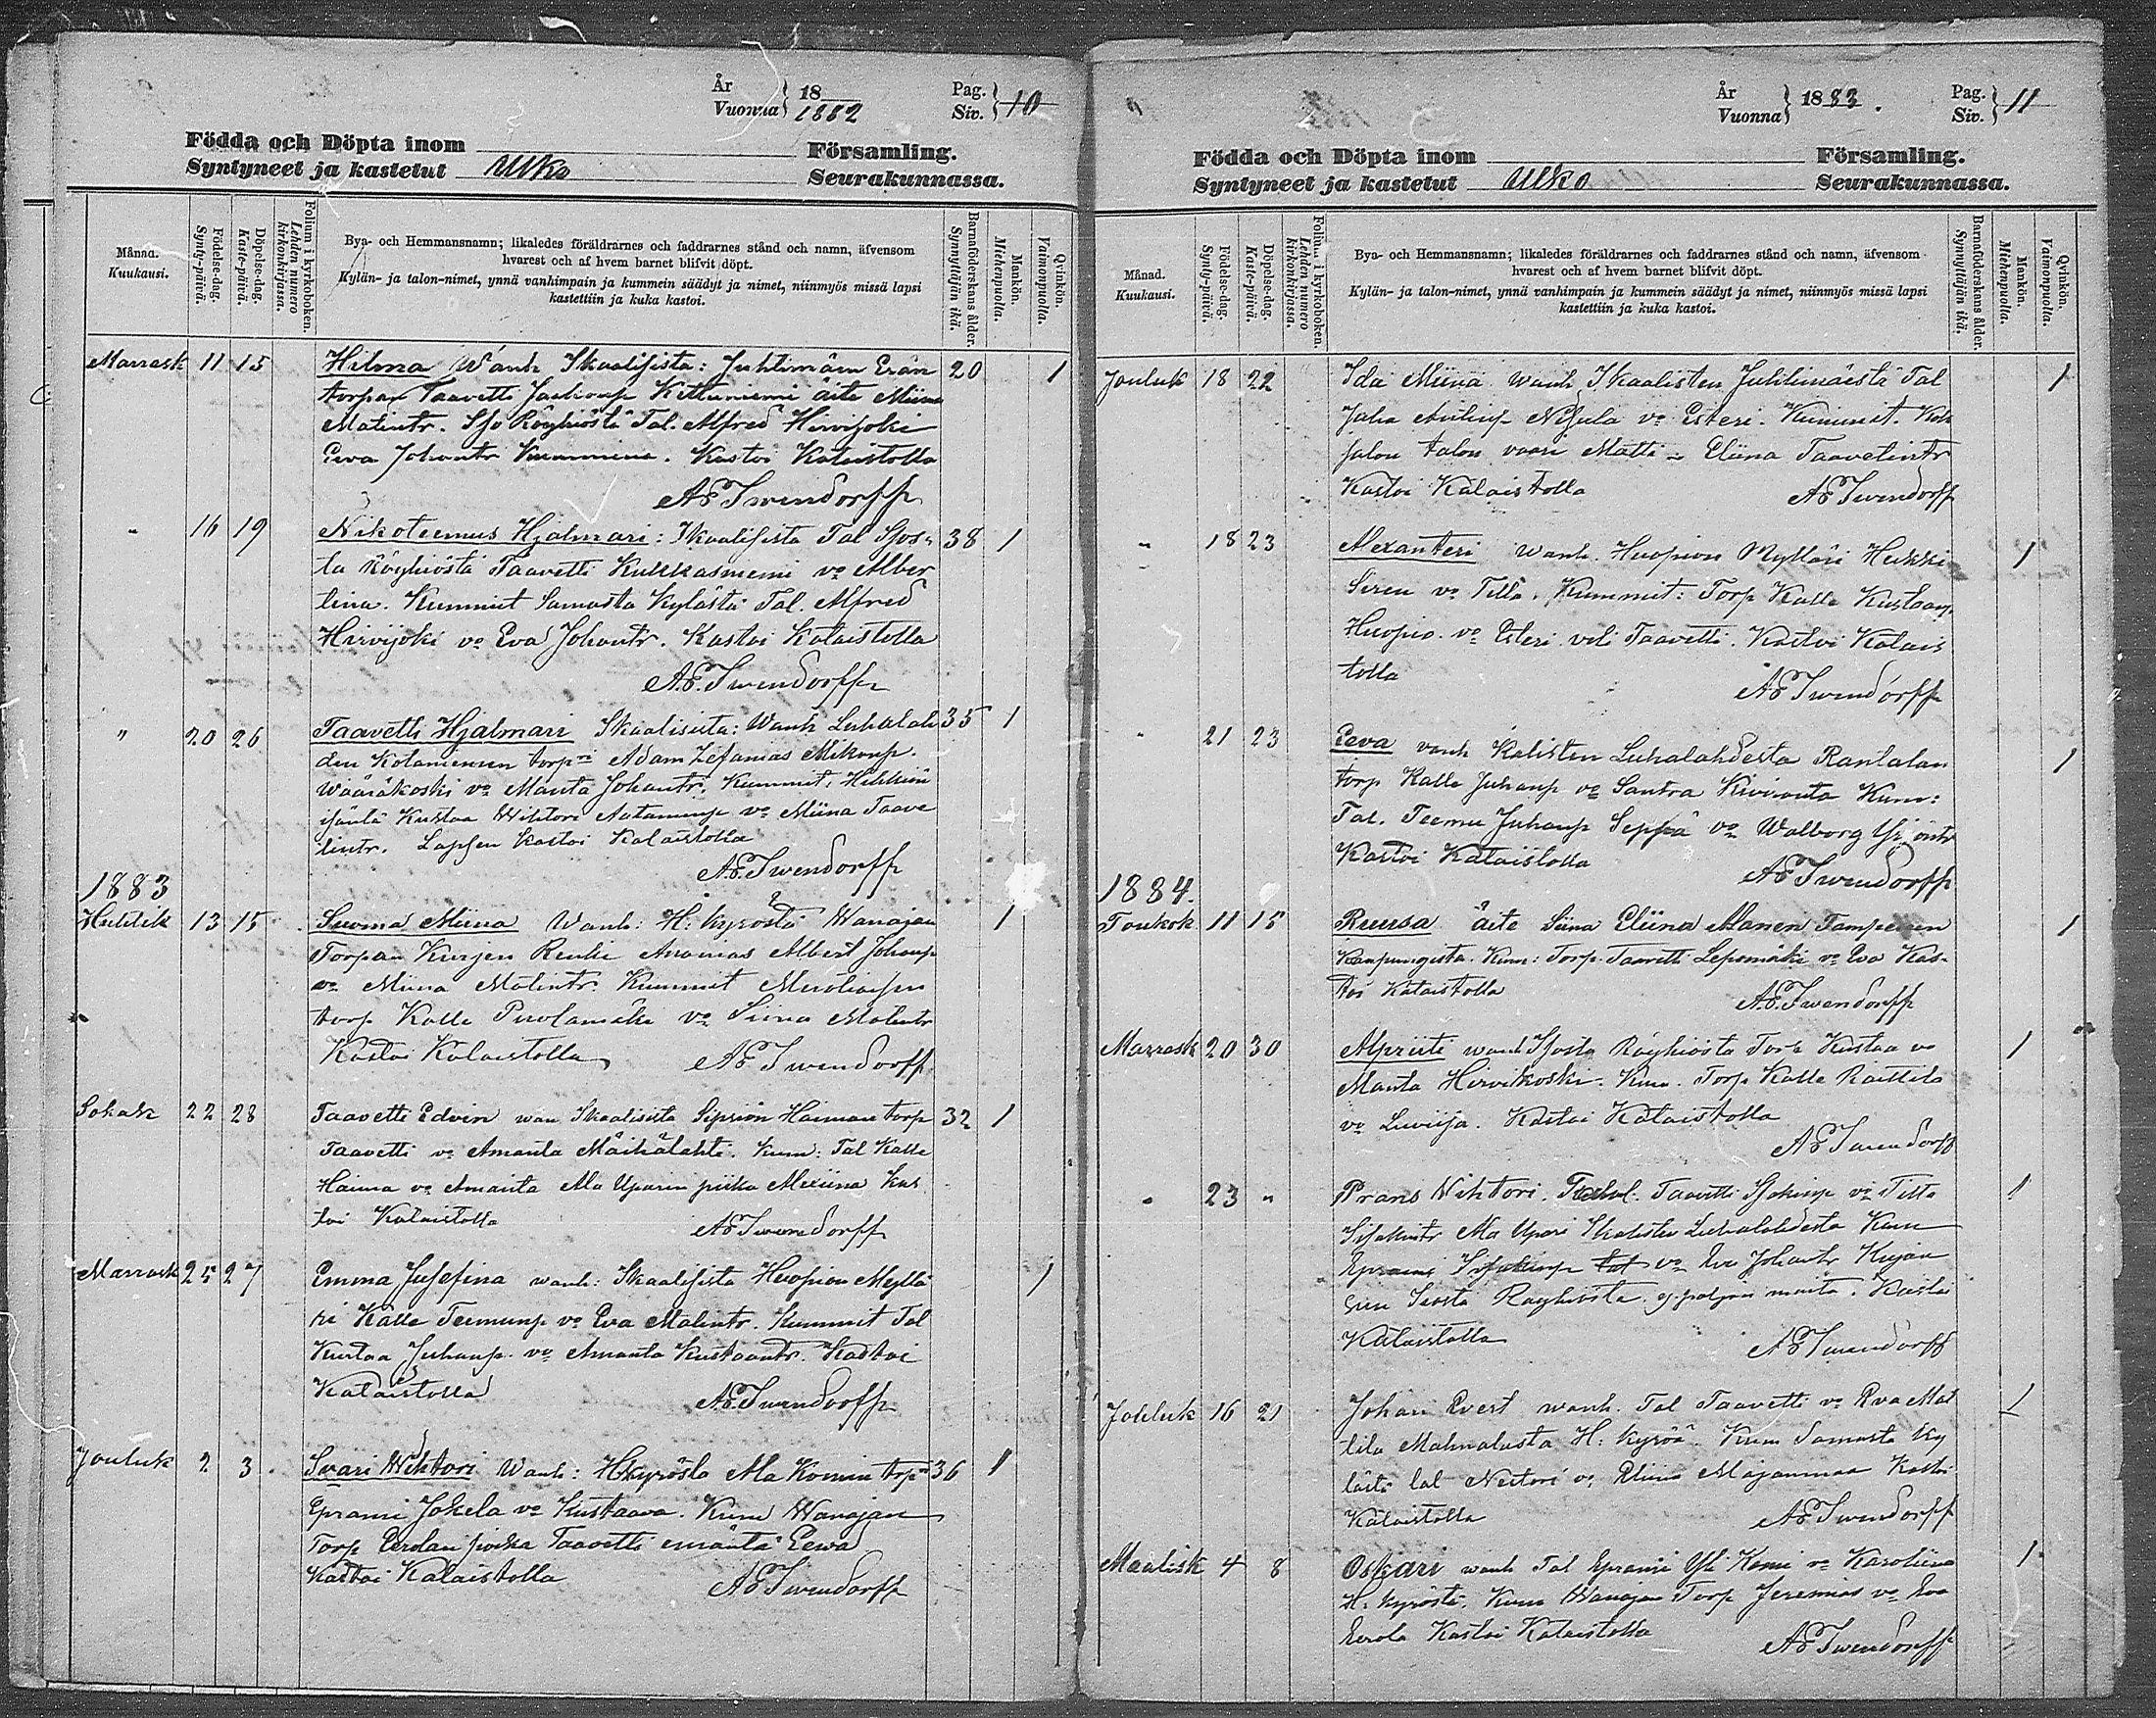 År
Vuonna } 18
1882
Pag.
Siv. } 10
Födda och Döpta inom Församling.
Syntyneet ja kastetut Ulko Seurakunnassa.
Månna.
Kuukausi.
Födelse-dag.
Synty-päivä.
Döpelse-dag.
Kaste-päivä.
Folium i kyrkoboken.
Lehden numero
kirkonkirjassa.
Bya- och Hemmansnamn; likaledes föräldrarnes och faddrarnes stånd och namn, äfvensom
hvarest och af hvem barnet blifvit döpt.
Kylän- ja talon-nimet, ynnä vanhimpain ja kummein säädyt ja nimet, niinmyös missä lapsi
kastettiin ja kuka kastoi.
Barnaföderskans ålder.
Synnyttäjän ikä.
Mankön.
Miehenpuolia.
Qvinkön.
Vaimonpuolia.
Marrask 11 15 Hilma Wanh Ikaalisista: Juhtimäen Erän 20 1
torpan Taavetti Kittuniemi äite Miina
Matintr. Röyhiöstä Tal. Alfred Hirvijoki
Eeva Johantr Kastoi Kalaistolla
AE Swendorff
" 16 19 Nikoteemus Hjalmari: Ikaalisista Tal Sjos- 38 1
ta Röyhiöstä Taavetti Kukkasniemi vo Alber
tina. Kummit Samasta Kylästä Tal. Alfred
Hirvijoki vo Eva Johantr. Kastoi Kalaistolla
AE. Swendorff
" 20 26 Taavetti Hjalmari Ikaalisista: Wanh Luhalah 35 1
den torpri Adam Zefanias Mikonp.
Wääräkoski vo Manta Johantr. Kummit:
isäntä Kustaa Wihtori vo Miina Taave
tintr. Lapsen kastoi Kalaistolla
AE. Swendorff
1883
Huhtik 13 15 Suoma Miina Wanh: H: kyröstä Wanajan 1
Torpan Kurjen Renki Ananias Albert Johanp
vo Miina Matintr. Kummit
torp Kalle Puolamäki vo Matintr
Kastoi Kalaistolla AE Swendorff
Lokak 22 28 Taavetti Edvin wan Ikaalisista Sipsiön Haiman torp 32 1
Taavetti vo Amanta Mäihälahti. Kum: Tal Kalle
Haima vo Amanta Ala Uparin piika Miina Kas
toi Kalaistolla AE Swendorff
Marrask 25 27 Emma Jusefina wanh: Ikaalisista Huopion Myllä 1
ri Kalle Teemunp vo Eva Matintr. Kummit Tal
Kustaa Juhanp. vo Amanta Kustaantr. Kastoi
Kalaistolla AE. Swendorff
Jouluk 2 3 Ivari Wihtori Wanh: Hkyröstä Ala Komin trp 36 1
Eprami Jokela vo Kustaava. Kum Wanajan
Torp Eerolan poika Taavetti emäntä Eewa
Kastoi Kalaistolla AE Swendorff
År
Vuonna } 1883.
Pag.
Siv. } 11
Födda och Döpta inom Församling.
Syntyneet ja kastetut Ulko Seurakunnassa.
Månad.
Kuukausi.
Födelse-dag.
Synty-päivä.
Döpelse-dag.
Kaste-päivä.
Folium i kyrkoboken.
Lehden numero
kirkonkirjassa.
Bya- och Hemmansnamn; likaledes föräldrarnes och faddrarnes stånd och namn, äfvensom
hvarest och af hvem barnet blifvit döpt.
Kylän- ja talon-nimet, ynnä vanhimpain ja kummein säädyt ja nimet, niinmyös missä lapsi
kastettiin ja kuka kastoi.
Barnaföderskans ålder.
Synnyttäjän ikä.
Mankön.
Miehenpuolia.
Qvinkön.
Vaimonpuolia.
Jouluk 18 22 Ida Miina Wanh. Ikaalisten Juhtimäestä Tal 1
Juha Nisula vo Esteri. Kummit.
talon vaari Matti Eliina Taavetintr
Kastoi Kalaistolla AE Swendorff
" 18 23 Alexanteri Wanh. Huopion Mylläri Heikki 1
Siren vo Tilta. Kummit: Torp Kalle Kustaanp
Huopio. vo Esteri veli Taavetti. Kastoi Kalais
tolla AE Swendorff
" 21 23 Eeva vanh Kalisten Luhalahdesta Rantalan 1
torp Kalle Juhanp vo Santra Kiviranta Kum:
Tal. Teemu Juhanp Seppä vo Walborg
Kastoi Kalaistolla AE Swendorff
1884.
Toukok 11 15 Ruusa Äite Siina Eliina Alanen Tampereen 1
Kaupungista. Kum: Torp. Taavetti Lepomäki vo Eva Kas-
toi Kalaistolla AE. Swendorff
Marrask 20 30 Alpriiti wanh Sjosta Röyhiöstä Torp Kustaa vo 1
Manta Hirvikoski. Kum. Torp. Kalle Raittila
vo Loviisa. Kastoi Kalaistolla
AE Swendorff
" 23 " Prans Wihtori. Taavetti vo Tilta 1
Ala Upari Ikalisten Luhalahdesta Kum
vo Eva Johantr
Röyhiöstä. Kastoi
Kalaistolla AE Swendorff
Jouluk 16 21 Johan Evert wanh. Tal Taavetti vo Eva Mat 1
tila Mahnalasta H: kyröä. Kum Samasta ky
lästä tal Nestori vo Eliina Majanmaa Kastoi
Kalaistolla AE Swendorff
Maalisk 4 8 Oskari wanh Tal Eprami Yli Komi vo Karoliina 1
H: kyröstä. Kum Wanajan Torp Jeremias vo Eva
Eerola Kastoi Kalaistolla AE Swendorff